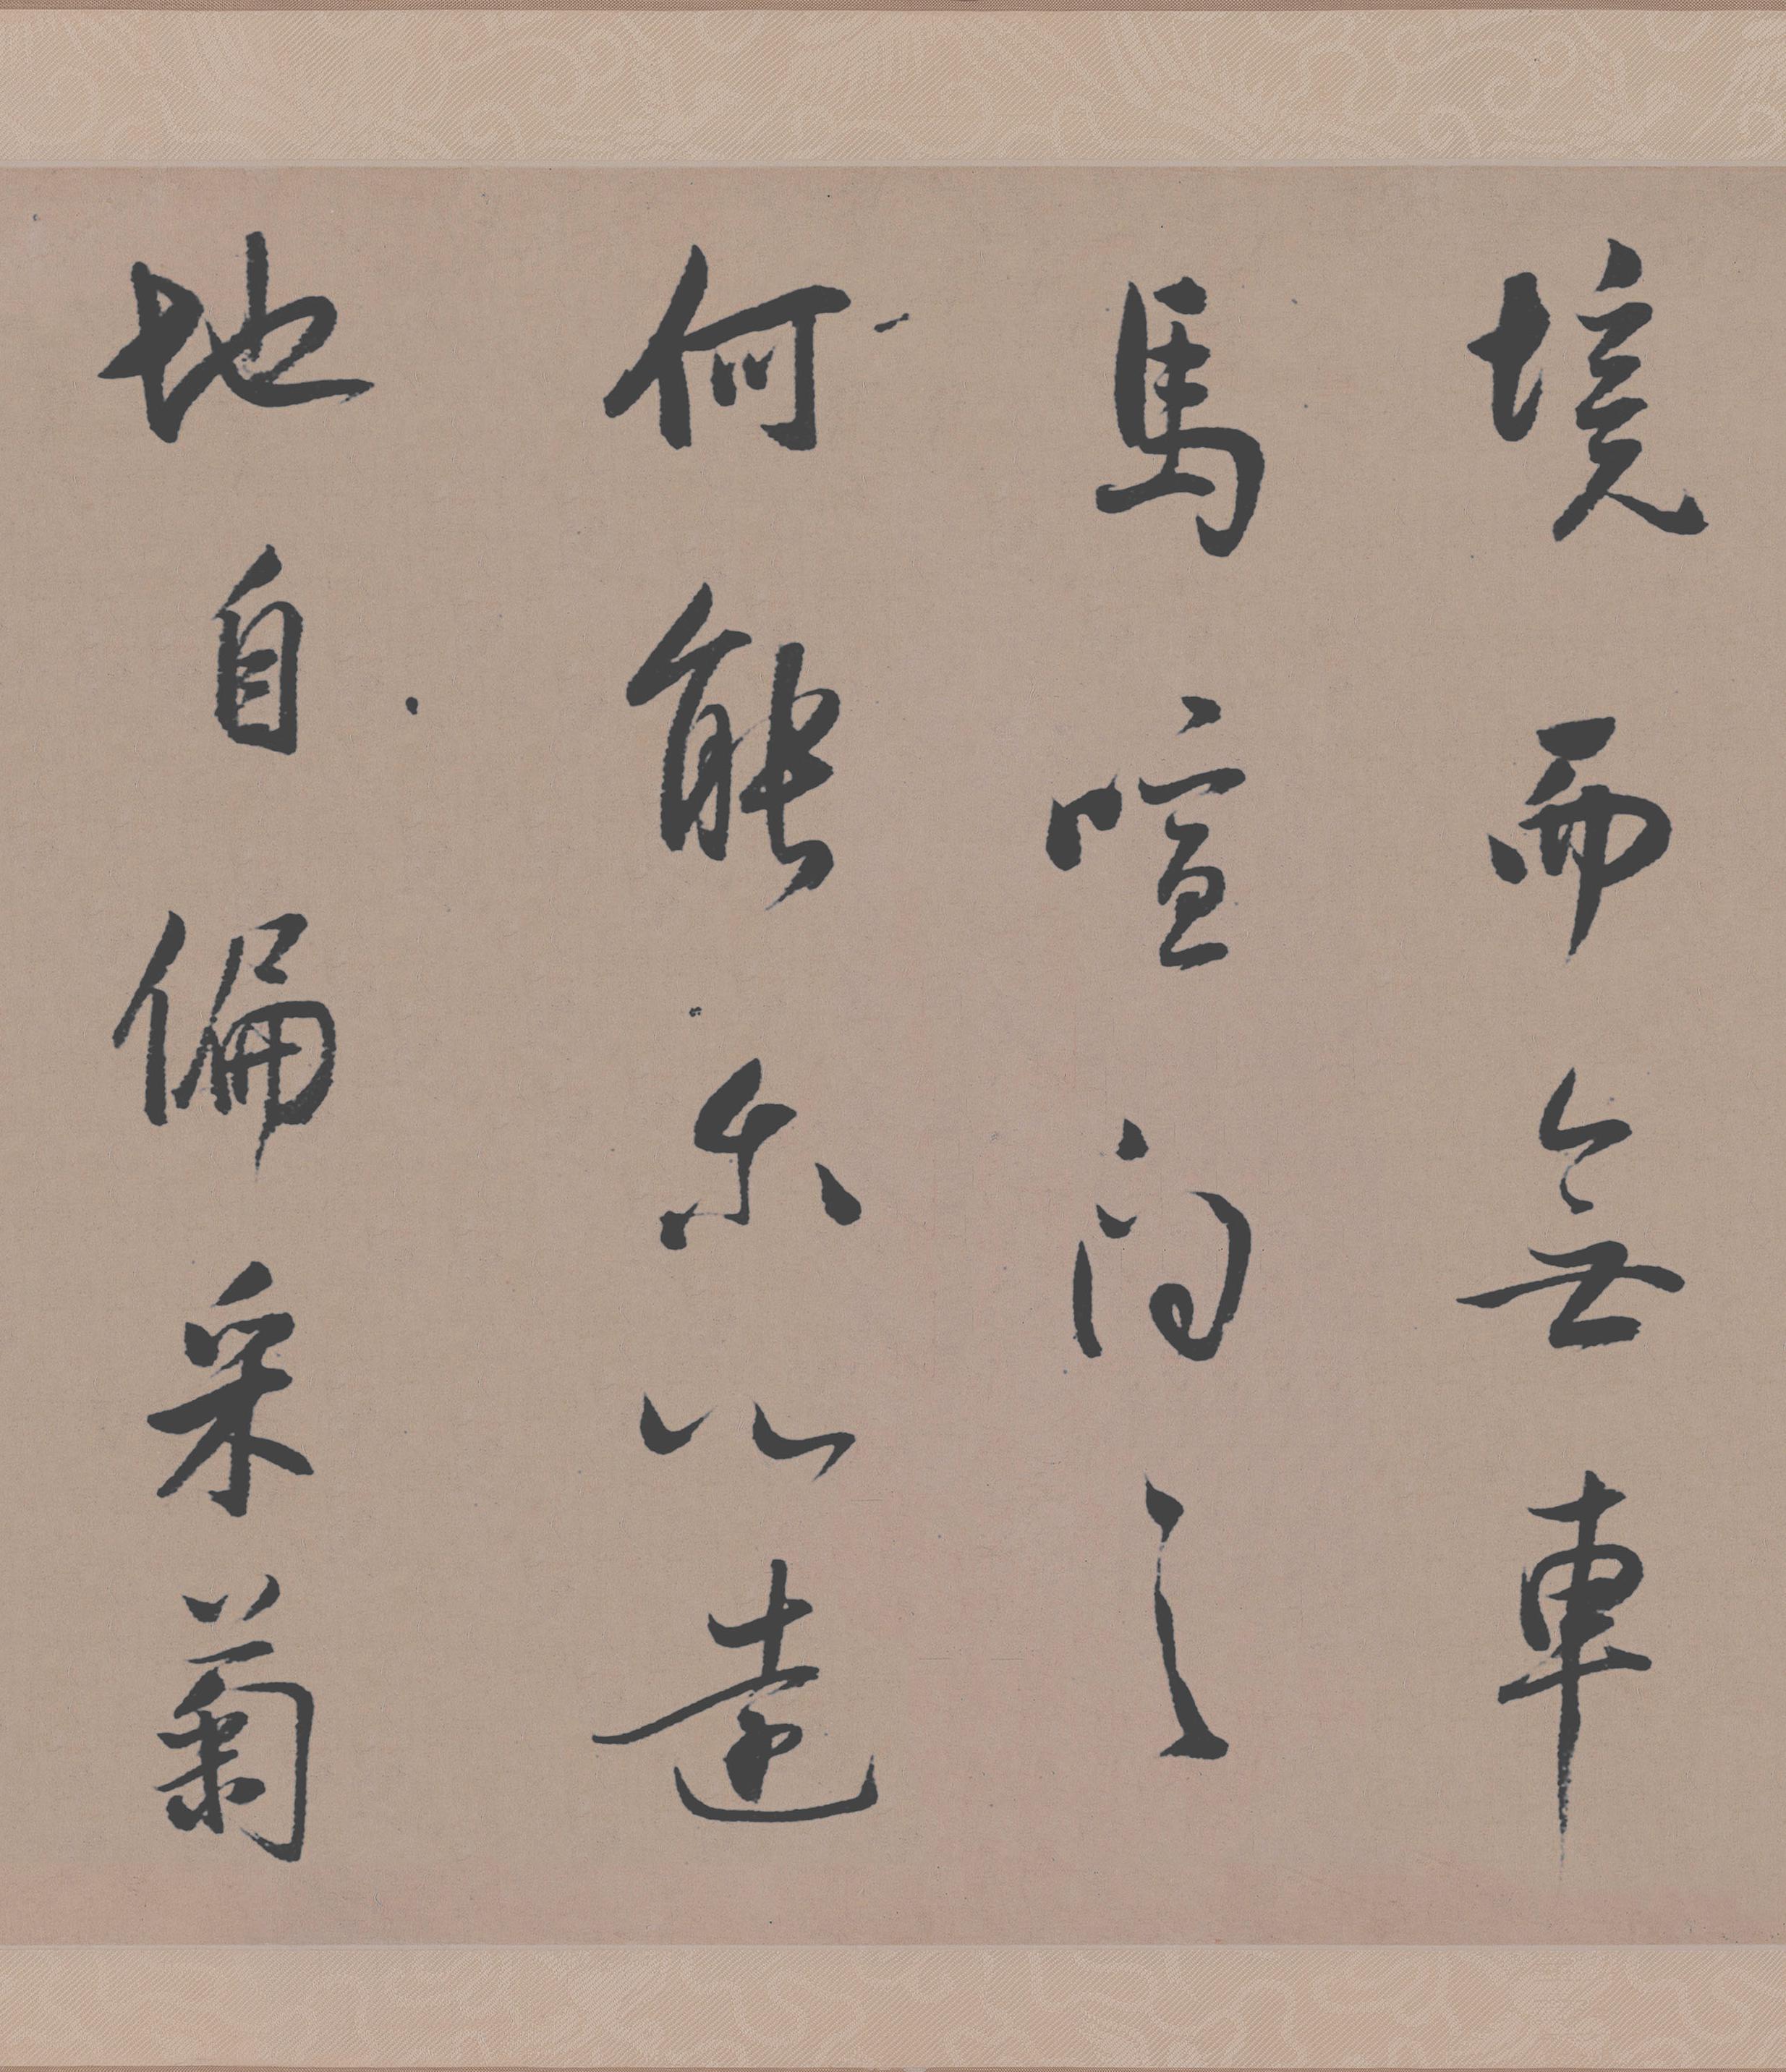 境而無車
馬喧問之
何能尒心遠
地自偏采菊